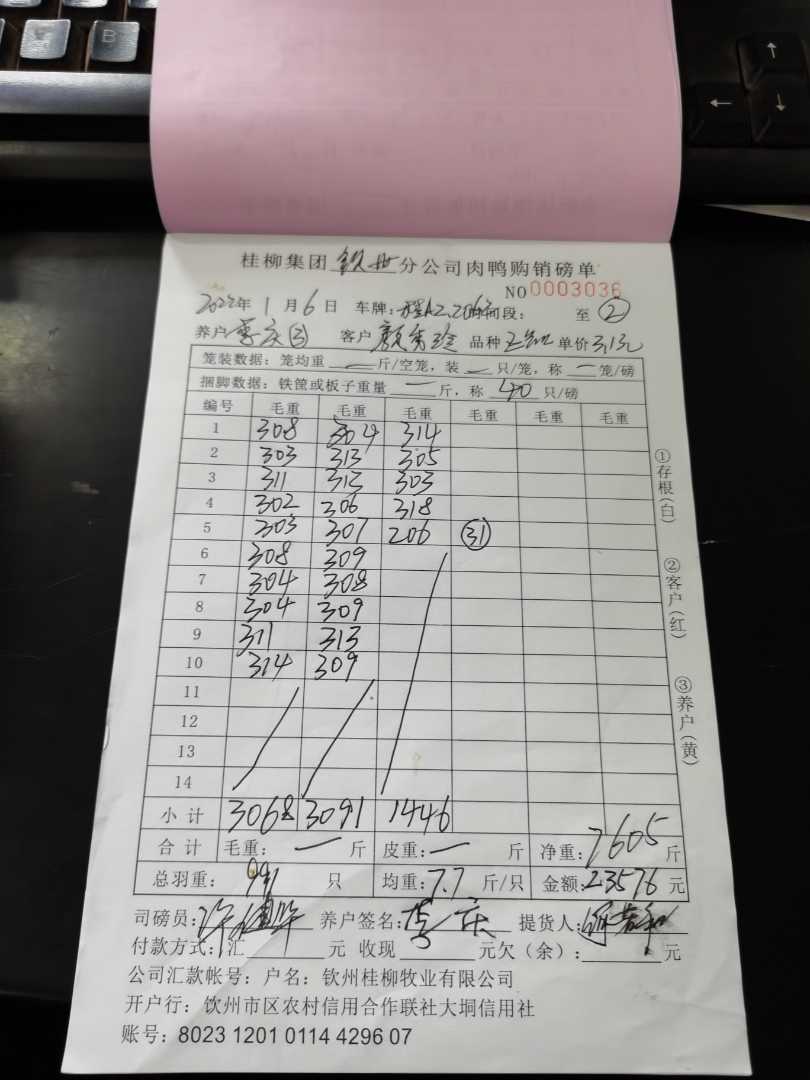 桂柳集团 钦州 分公司肉鸭购销磅单
NO 0003036
2022年 1 月 6 日 车牌: 时间段: 至 ②
养户 李庆 客户 颜 品种 单价 3.1元
笼装数据: 笼均重 — 斤/空笼, 装 — 只/笼, 称 — 笼/磅
捆脚数据: 铁筐或板子重量 — 斤, 称 40 只/磅
编号 毛重 毛重 毛重 毛重 毛重 毛重
1 308 304 314
2 303 313 305
3 311 313 303
4 302 306 318
5 303 307 206 ㉛
6 308 309
7 304 308
8 304 309
9 311 313
10 314 309
11
12
13
14
小计 3068 3091 1446
合计 毛重: — 斤 皮重: — 斤 净重: 7605 斤
总羽重: 991 只 均重: 7.7 斤/只 金额: 23576 元
司磅员: 养户签名: 李庆 提货人:
付款方式: 汇 元 收现 元欠(余): 元
公司汇款帐号: 户名: 钦州桂柳牧业有限公司
开户行: 钦州市区农村信用合作联社大垌信用社
账号: 8023 1201 0114 4296 07
①存根(白)
②客户(红)
③养户(黄)